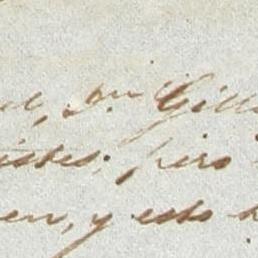 el, Sor Gill
istes; pero
en, y esto